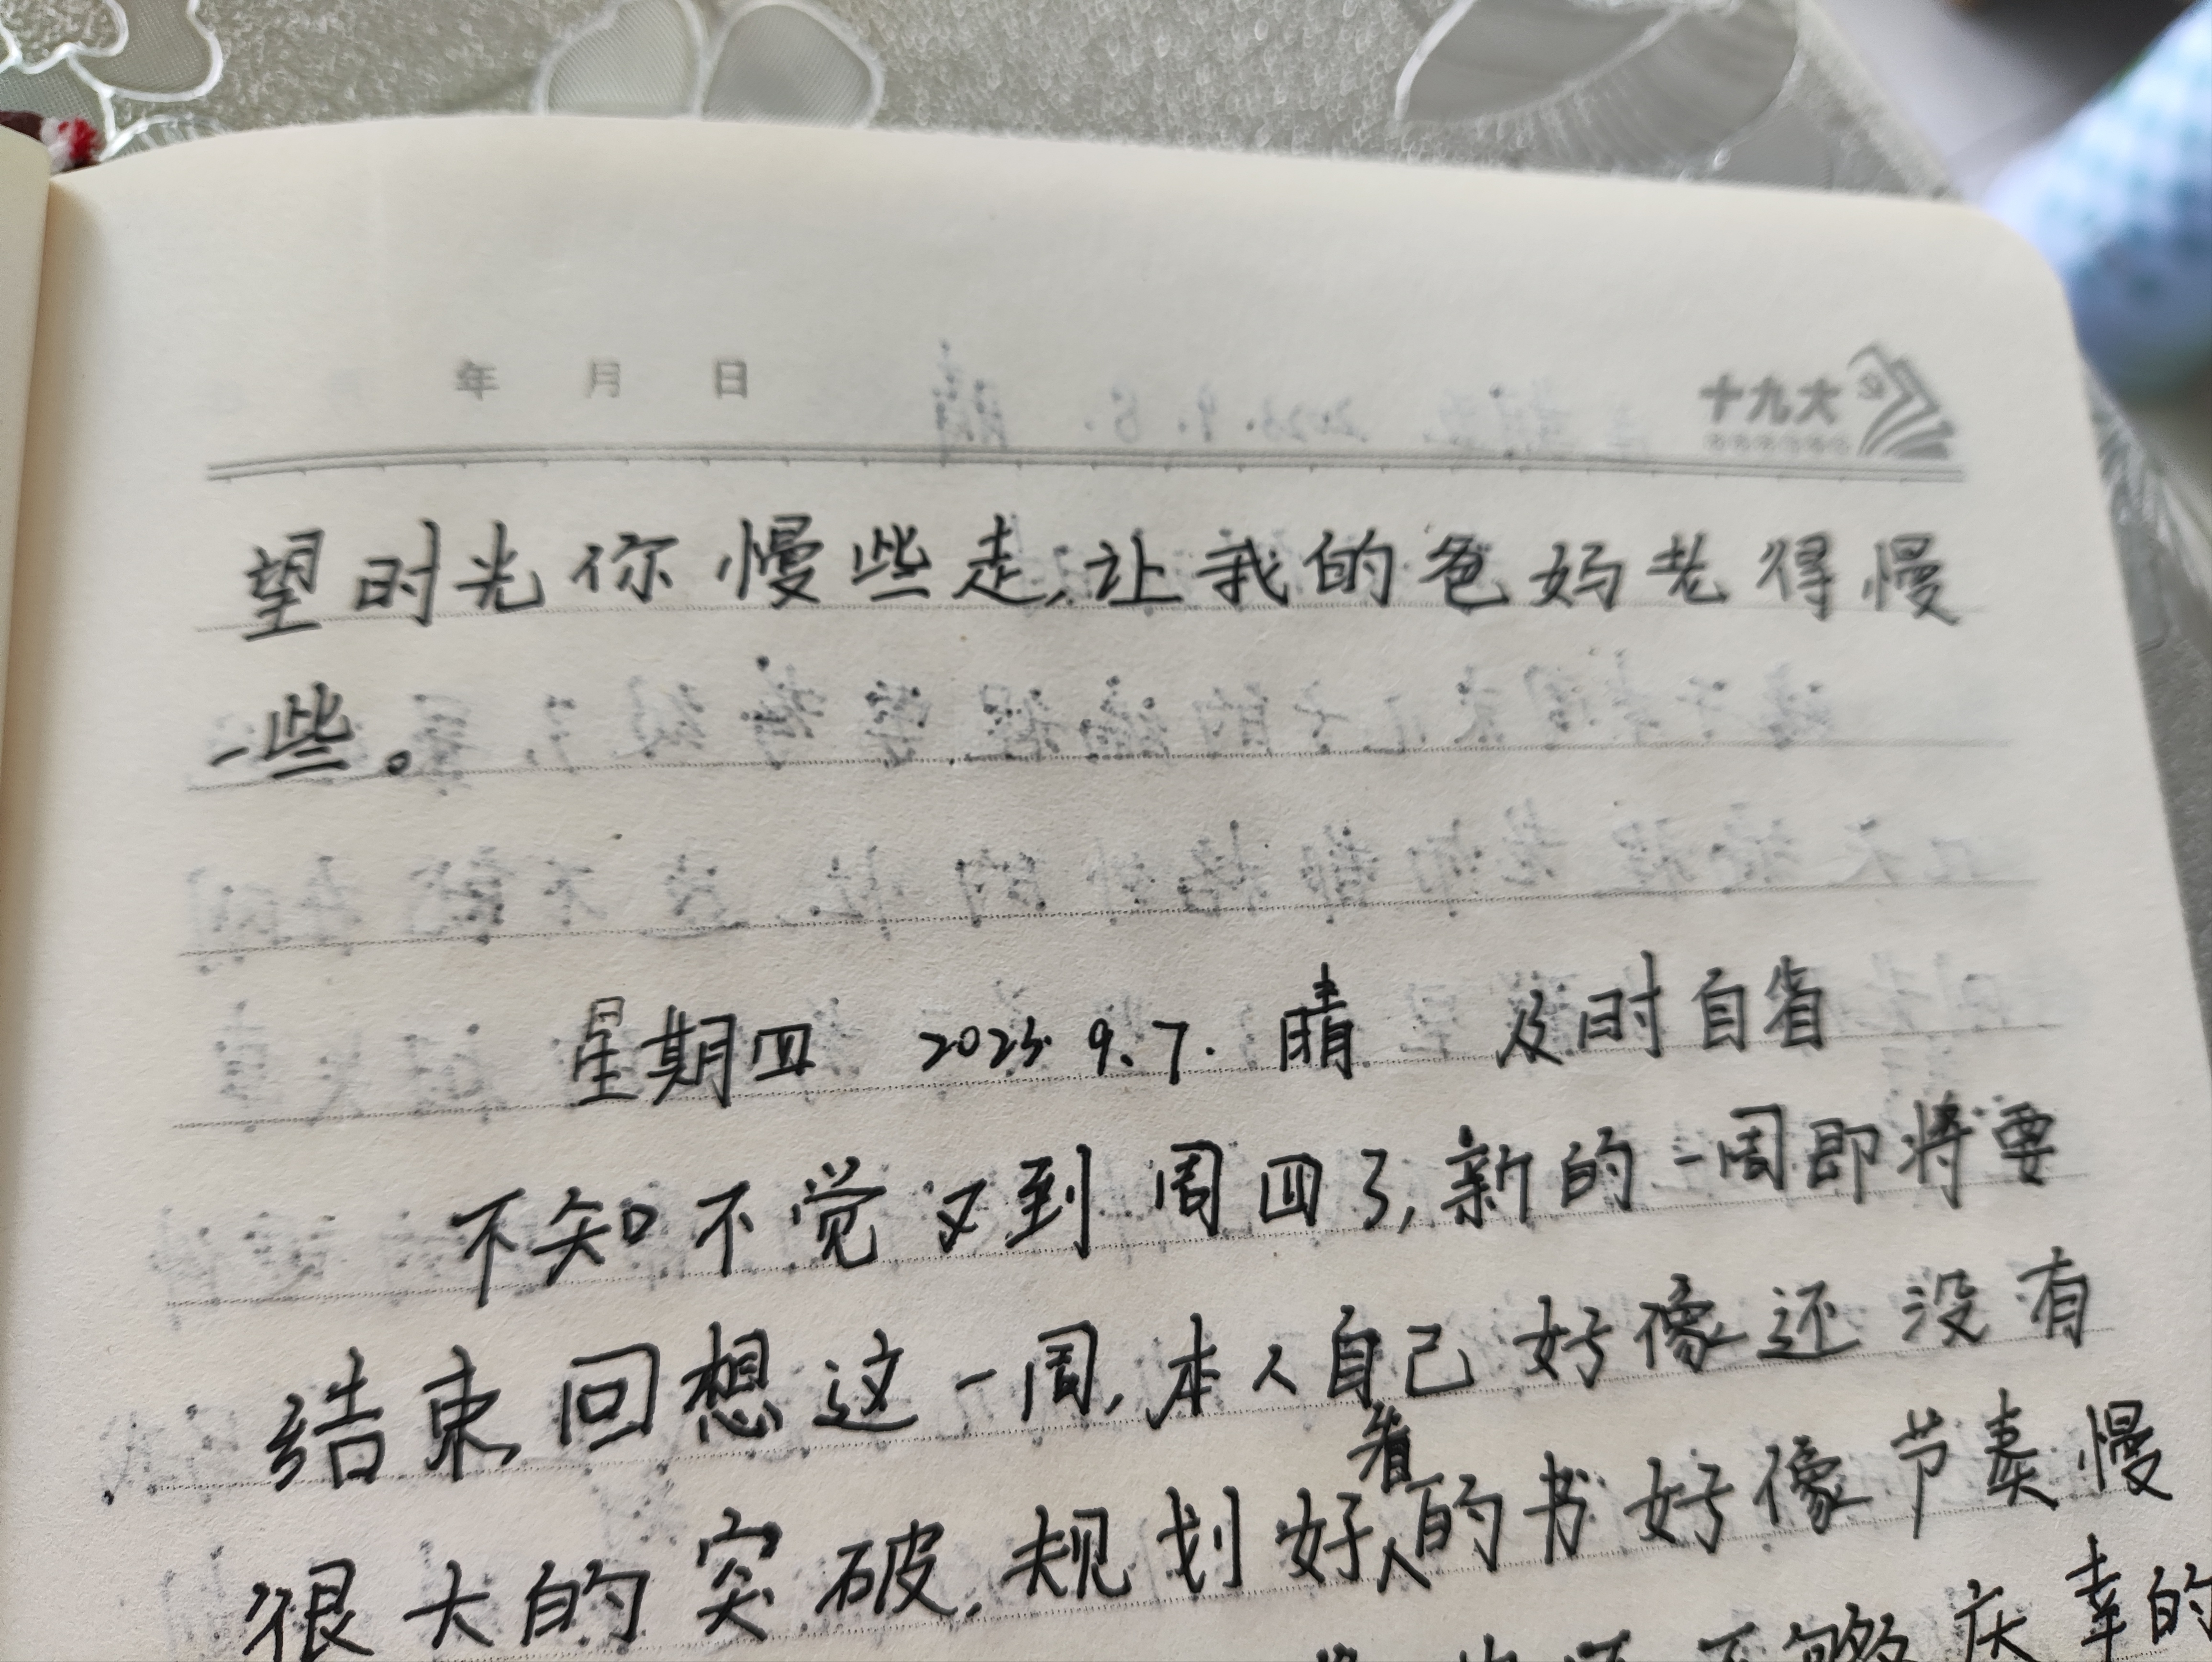 年 月 日
十九大
望时光你慢些走,让我的爸妈老得慢
一些。
星期四 2023. 9.7. 晴 及时自省
不知不觉又到周四了,新的一周即将要
结束回想这一周,本人自己好像还没有
看
很大的突破,规划好的书好像节奏慢
不够庆幸的